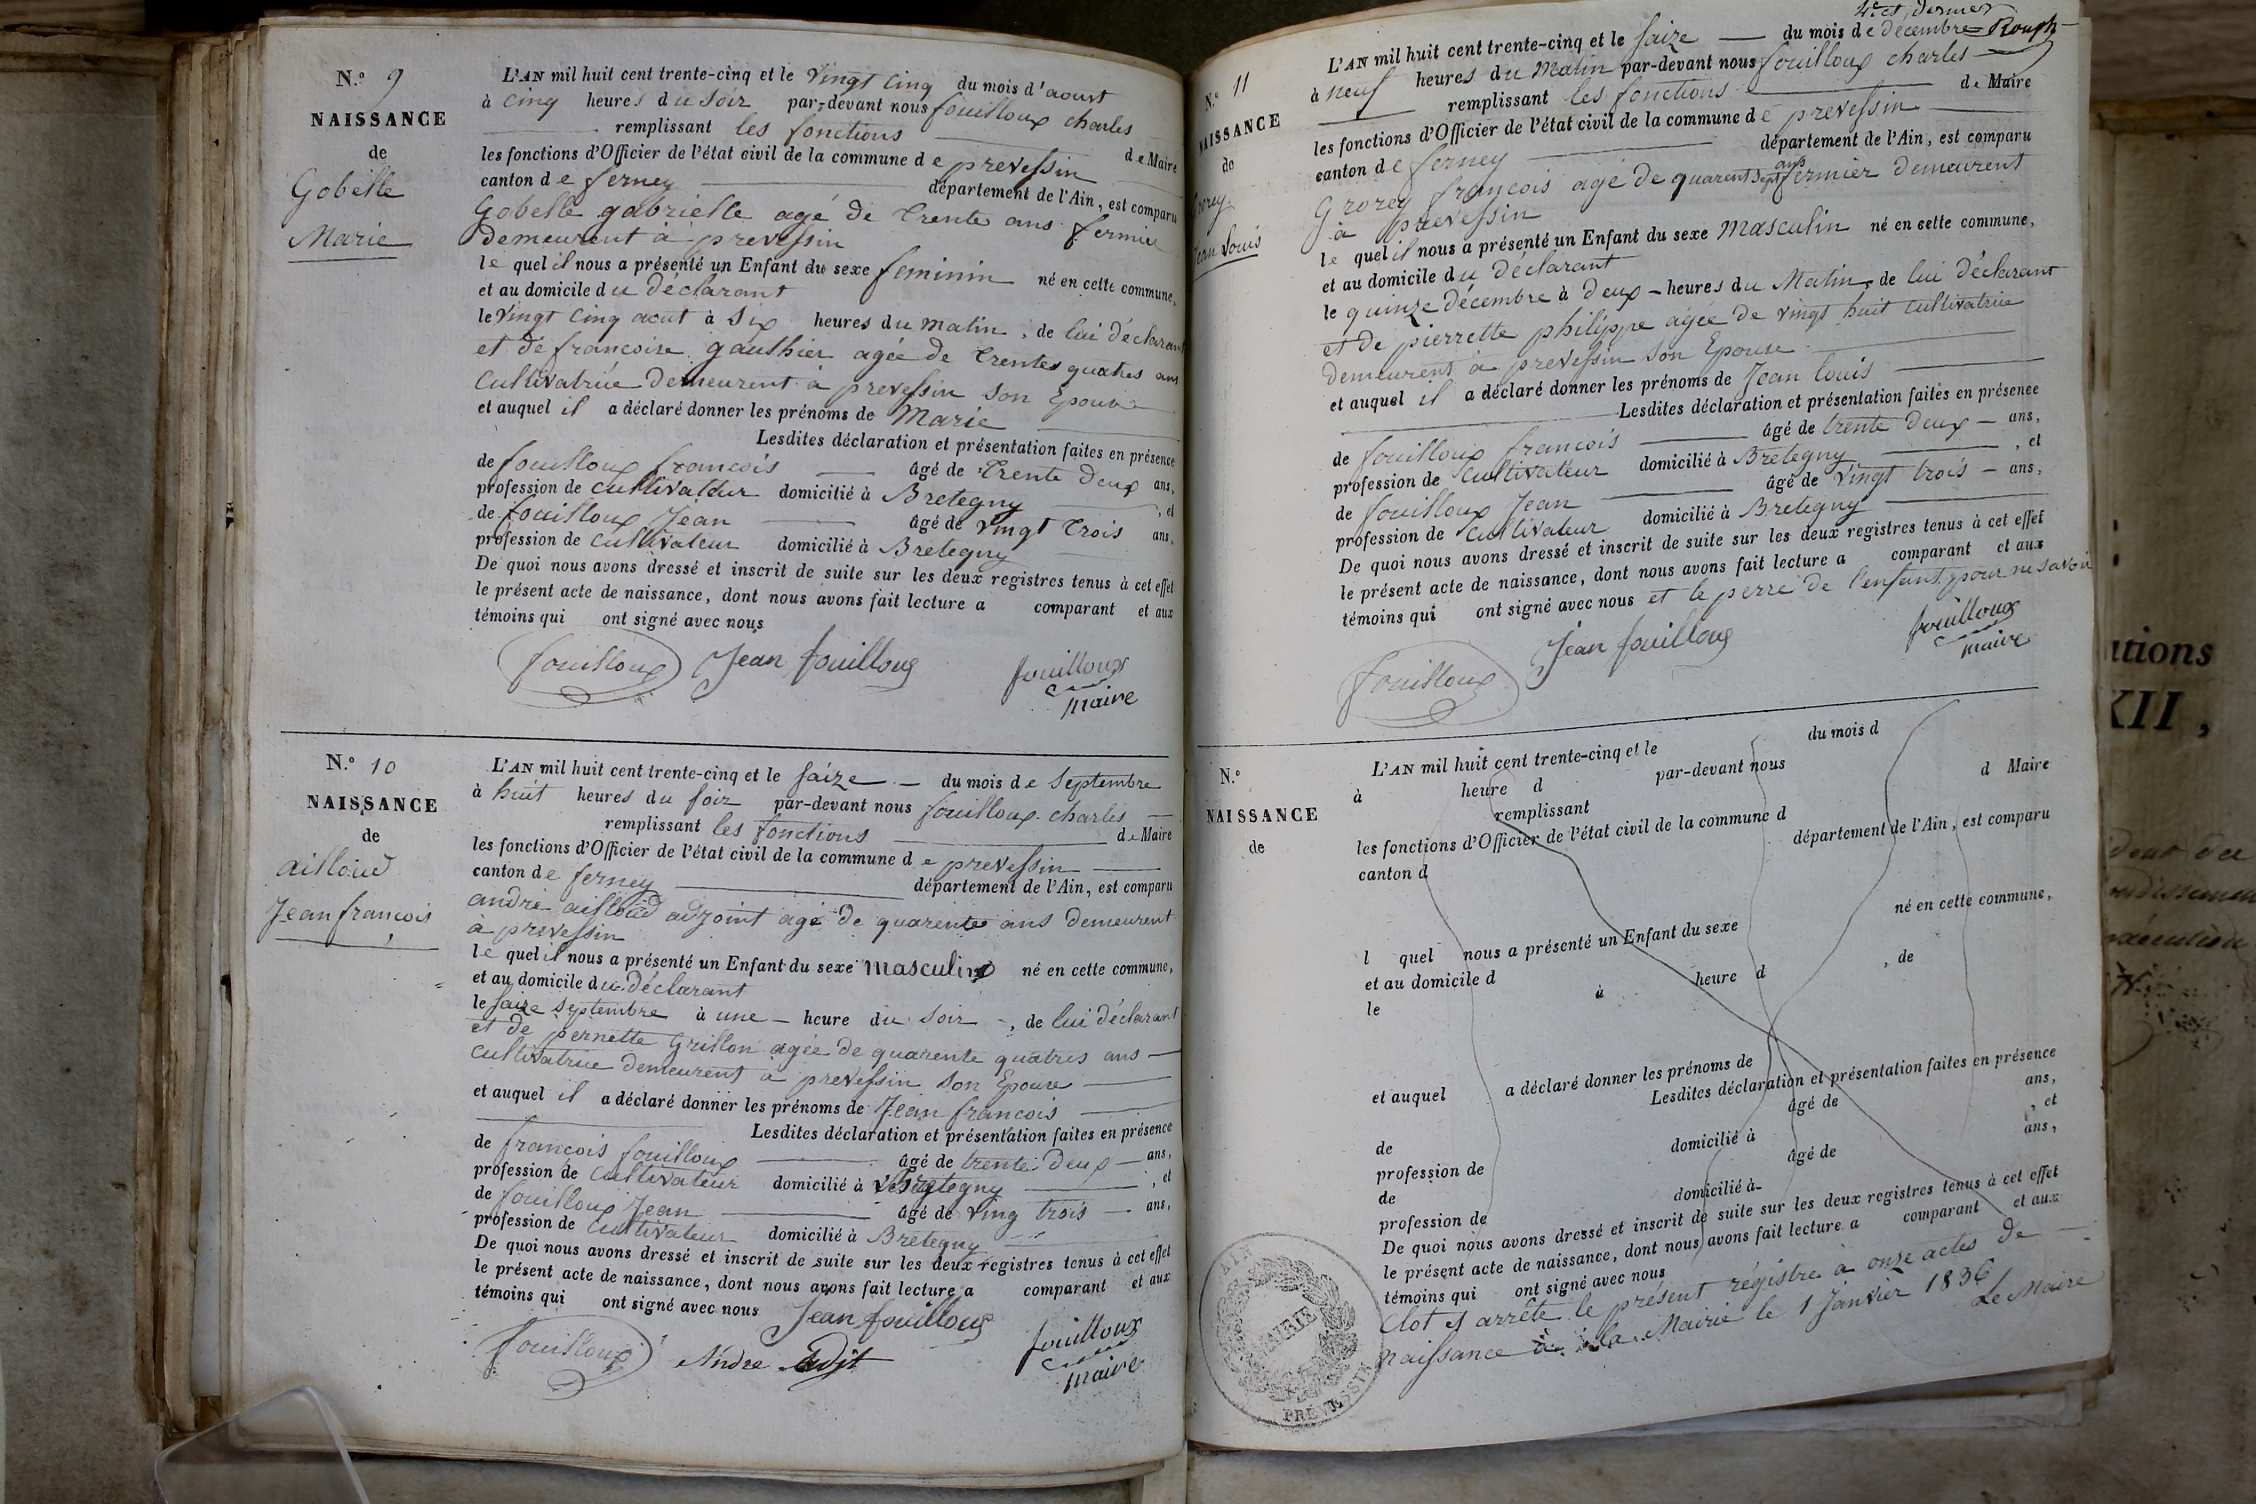 N.° 9
NAISSANCE
de
Gobelle
Marie
L'AN mil huit cent trente-cinq et le vingt cinq du mois d'aoust
à cinq heures du soir par-devant nous fouilloux charles
remplissant les fonctions de Maire
les fonctions d'Officier de l'état civil de la commune de prevessin
canton de ferney département de l'Ain, est comparu
Gobelle gabrielle agé de trente ans fermier
demeurent à prevessin
le quel il nous a présenté un Enfant du sexe feminin né en cette commune,
et au domicile du déclarant
le vingt cinq aout à six heures du matin, de lui déclarant
et de francoise gauthier agée de trentes quatres ans
cultivatrice demeurent à prevessin son Epouse
et auquel il a déclaré donner les prénoms de Marie
Lesdites déclaration et présentation faites en présence
de fouilloux francois âgé de trente deux ans,
profession de cultivateur domicilié à Bretegny, et
de fouilloux Jean âgé de vingt trois ans,
profession de cultivateur domicilié à Bretegny
De quoi nous avons dressé et inscrit de suite sur les deux registres tenus à cet effet
le présent acte de naissance, dont nous avons fait lecture a comparant et aux
témoins qui ont signé avec nous
fouilloux Jean fouilloux fouilloux
maire
N.° 10
NAISSANCE
de
ailloud
Jean francois
L'AN mil huit cent trente-cinq et le saize du mois de septembre
à huit heures du soir par-devant nous fouilloux charles
remplissant les fonctions de Maire
les fonctions d'Officier de l'état civil de la commune de prevessin
canton de ferney département de l'Ain, est comparu
andré ailloud adjoint agé de quarente ans demeurent
à prevessin
le quel il nous a présenté un Enfant du sexe masculin né en cette commune,
et au domicile du déclarant
le saize septembre à une heure du soir, de lui déclarant
et de pernette Grillon agée de quarente quatres ans
cultivatrice demeurent à prevessin son Epouse
et auquel il a déclaré donner les prénoms de Jean francois
Lesdites déclaration et présentation faites en présence
de francois fouilloux âgé de trente deux ans,
profession de cultivateur domicilié à Bretegny, et
de fouilloux Jean âgé de ving trois ans,
profession de cultivateur domicilié à Bretegny
De quoi nous avons dressé et inscrit de suite sur les deux registres tenus à cet effet
le présent acte de naissance, dont nous avons fait lecture a comparant et aux
témoins qui ont signé avec nous Jean fouilloux
fouilloux Andre Adjt fouilloux
maire
4e et dernier
N.° 11
NAISSANCE
de
Grorey
Jean Louis
L'AN mil huit cent trente-cinq et le saize du mois de décembre
à neuf heures du matin par-devant nous fouilloux charles
remplissant les fonctions de Maire
les fonctions d'Officier de l'état civil de la commune de prevessin
canton de ferney département de l'Ain, est comparu
Grorey francois agé de quarent sept ans fermier demeurent
à prevessin
le quel il nous a présenté un Enfant du sexe masculin né en cette commune,
et au domicile du déclarant
le quinze décembre à deux heures du Matin, de lui déclarant
et de pierrette philippe agée de vingt huit cultivatrice
demeurent à prevessin son Epouse
et auquel il a déclaré donner les prénoms de Jean louis
Lesdites déclaration et présentation faites en présence
de fouilloux francois âgé de trente deux ans,
profession de cultivateur domicilié à Bretegny, et
de fouilloux Jean âgé de vingt trois ans,
profession de cultivateur domicilié à Bretegny
De quoi nous avons dressé et inscrit de suite sur les deux registres tenus à cet effet
le présent acte de naissance, dont nous avons fait lecture a comparant et aux
témoins qui ont signé avec nous et le perre de l'enfant pour ne savoir
fouilloux Jean fouilloux fouilloux
maire
N.°
NAISSANCE
de
L'AN mil huit cent trente-cinq et le du mois d
à heure d par-devant nous
remplissant d Maire
les fonctions d'Officier de l'état civil de la commune d
canton d département de l'Ain, est comparu
l quel nous a présenté un Enfant du sexe né en cette commune,
et au domicile d
le à heure d, de
et auquel a déclaré donner les prénoms de
Lesdites déclaration et présentation faites en présence
de âgé de ans,
profession de domicilié à, et
de âgé de ans,
profession de domicilié à
De quoi nous avons dressé et inscrit de suite sur les deux registres tenus à cet effet
le présent acte de naissance, dont nous avons fait lecture a comparant et aux
témoins qui ont signé avec nous
Clot et arrête le présent régistre à onze actes de
naissance à la Mairie le 1 Janvier 1836
Le Maire
AIN
MAIRIE
PREVESSIN
ations
XII,